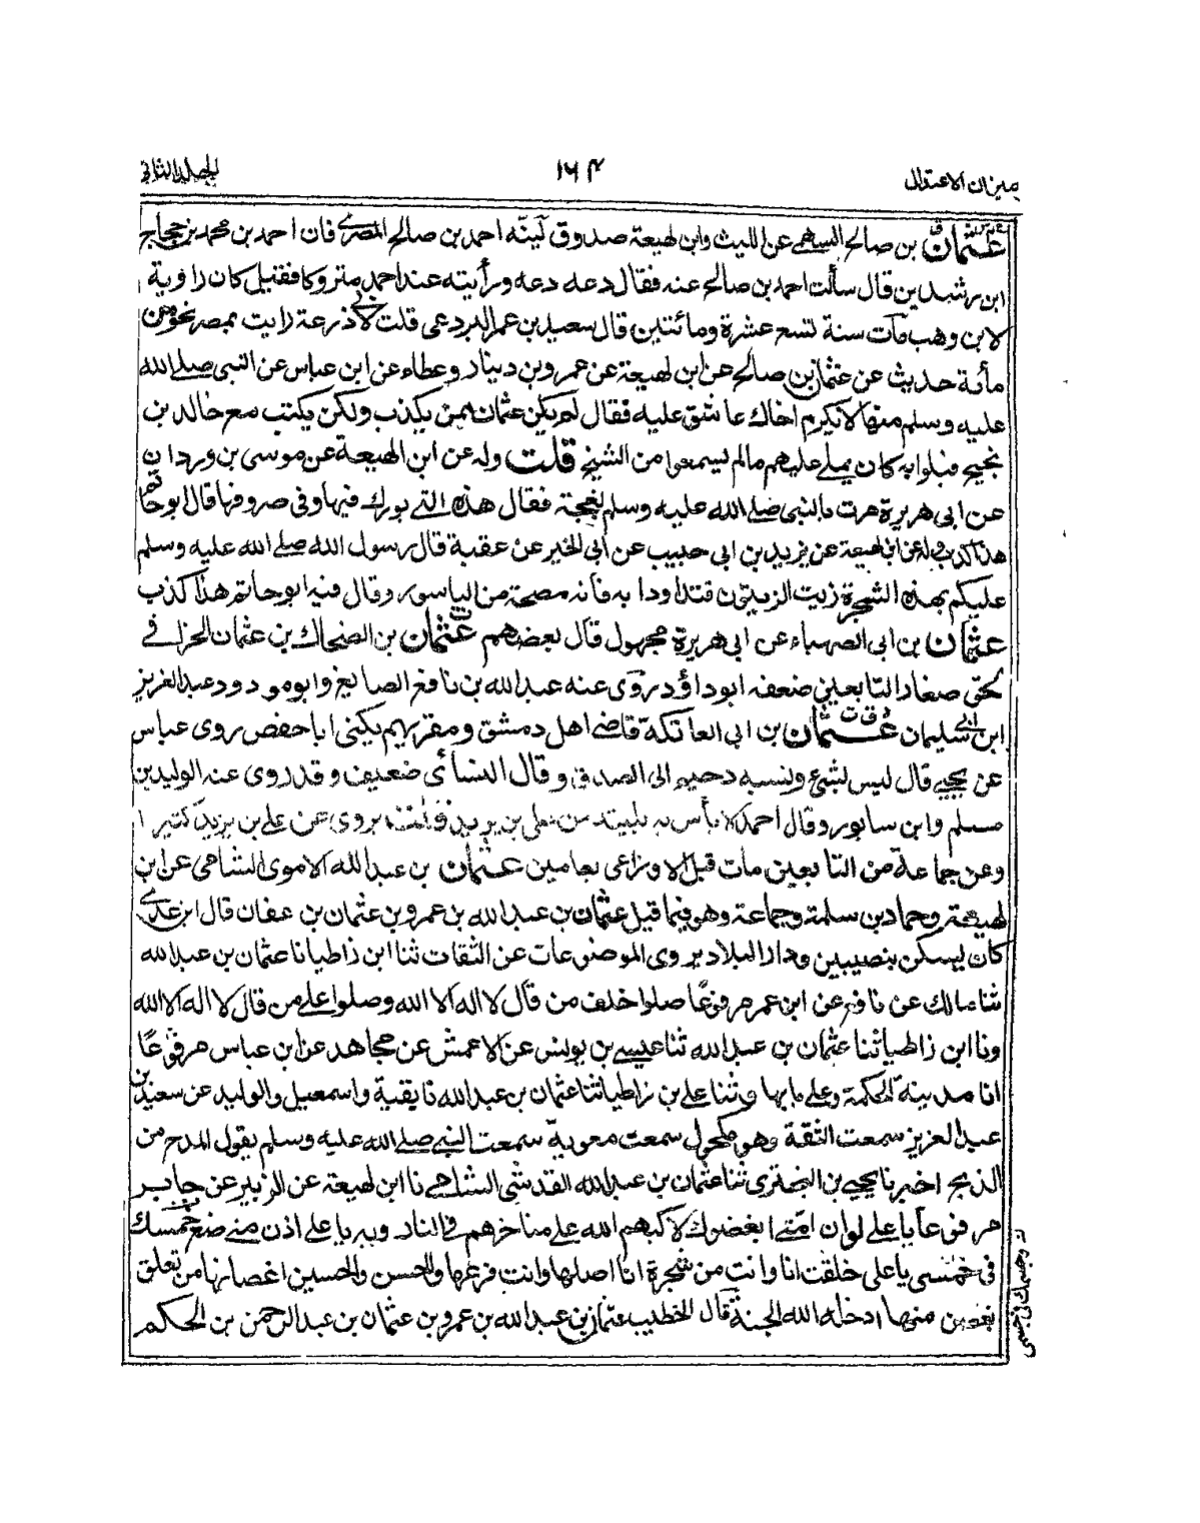 ميزان الاعتدال ١٦٤ الجلد الثاني
عثمان بن صالح السهمي عن الليث وابن لهيعة صدوق لينه احمد بن صالح المصري فان احمد بن محمد بن حجاج
ابن رشدين قال سألت احمد بن صالح عنه فقال دعه دعه ورأيته عند احمد متروكا فقيل كان راوية
لابن وهب مات سنة تسع عشرة ومائتين قال سعيد بن عمر البردعي قلت لابي زرعة رايت بمصر نحو من
مأئة حديث عن عثمان بن صالح عن ابن لهيعة عن عمرو بن دينار وعطاء عن ابن عباس عن النبي صلى الله
عليه وسلم منها لا تكرم اخاك بما شق عليه فقال لم يكن عثمان ممن يكذب ولكن يكتب مع خالد بن
نجيح فبلوا به كان يملي عليهم مالم يسمعوا من الشيخ قلت وله عن ابن الهيعة عن موسى بن وردان
عن ابي هريرة مرت بالنبي صلى الله عليه وسلم نعجة فقال هذه التي بورك فيها وفي صروفها قال ابو حاتم
هذا كذب وله عن ابن لهيعة عن يزيد بن ابي حبيب عن ابي الخير عن عقبة قال رسول الله صلى الله عليه وسلم
عليكم بهذه الشجرة زيت الزيتون فتداووا به فانه مصحة من الباسور وقال فيه ابو حاتم هذا كذب
عثمان بن ابي الصهباء عن ابي هريرة مجهول قال بعضهم عثمان بن الضحاك بن عثمان الحزامي
لحق صغار التابعين ضعفه ابو داؤد روى عنه عبد الله بن نافع الصايغ وابو مودود عبد العزيز
ابن ابي سليمان عثمان بن ابي العاتكة قاضي اهل دمشق ومقريهم يكنى ابا حفص روى عباس
عن يحيى قال ليس بشئ ونسبه دحيم الى الصدق وقال النسائي ضعيف وقد روى عنه الوليد بن
مسلم وابن سابور وقال احمد لا بأس به بليته من علي بن يزيد قلت يروي عن علي بن يزيد كثيرا
وعن جماعة من التابعين مات قبل الاوزاعي بعامين عثمان بن عبد الله الاموي الشامي عن ابن
لهيعة وحماد بن سلمة وجماعة وهو فيما قيل عثمان بن عبد الله بن عمرو بن عثمان بن عفان قال ابن عدي
كان يسكن بنصيبين ودار البلاد يروي الموضوعات عن الثقات ثنا ابن زاطيا نا عثمان بن عبد الله
ثنا مالك عن نافع عن ابن عمر مرفوعًا صلوا خلف من قال لا اله الا الله وصلوا على من قال لا اله الا الله
ونا ابن زاطيا ثنا عثمان بن عبد الله ثنا عيسى بن يونس عن الاعمش عن مجاهد عن ابن عباس مرفوعًا
انا مدينة الحكمة وعلي بابها وثنا علي بن زاطيا ثنا عثمان بن عبد الله نا بقية واسمعيل والوليد عن سعيد بن
عبد العزيز سمعت الثقة وهو مكحول سمعت معوية سمعت النبي صلى الله عليه وسلم يقول المدح من
الذبح اخبرنا يحيى بن البختري ثنا عثمان بن عبد الله القدشي الشامي نا ابن لهيعة عن الزبير عن جابر
مرفوعا يا علي لو ان امتي ابغضوك لاكبهم الله على مناخرهم في النار وبه يا علي ادن مني ضع خمسك
في خمسي يا علي خلقت انا وانت من شجرة انا اصلها وانت فرعها والحسن والحسين اغصانها من تعلق
بغصن منها ادخله الله الجنة قال الخطيب عثمان بن عبد الله بن عمرو بن عثمان بن عبد الرحمن بن الحكم